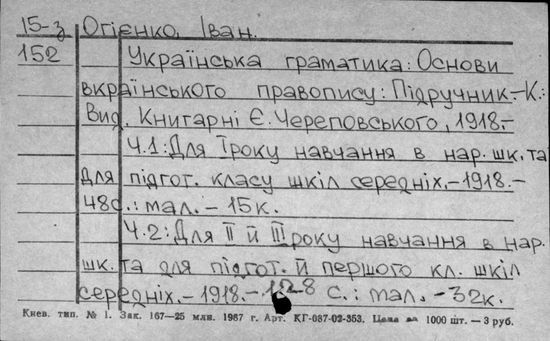 15-з Огієнко, Іван.
152 Українська граматика: Основи
вкраїнського правопису: Підручник.-К.:
Вид. Книгарні Є. Череповського, 1918.-
Ч.1: Для І року навчання в нар. шк. та
для підгот. класу шкіл середніх.-1918.-
48с.: мал. - 15к.
Ч.2: Для ІІ й ІІІ року навчання в нар.
шк. та для підгот. й першого кл. шкіл
середніх.-1918.- с.: мал. - 32к.
Киев. тип. № 1. Зак. 167—25 млн. 1987 г. Арт. КГ-087-02-353. Цена за 1000 шт. — 3 руб.